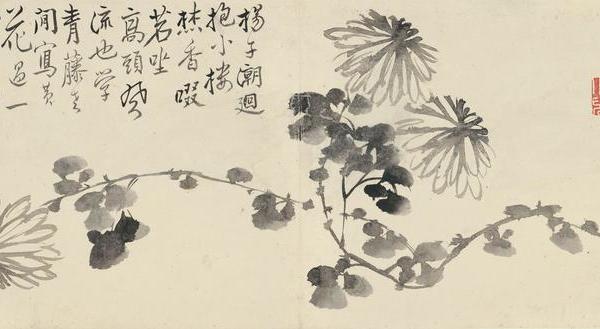 楊子潮迴
抱小樓
焚香啜
茗坐
高頭風
流也学
青藤老
閒寫黄
花過一